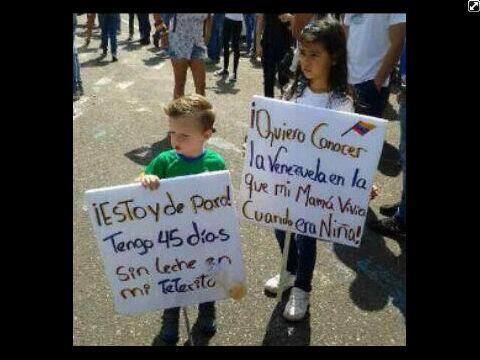 ¡Estoy de Paro!
Tengo 45 días
Sin Leche en
mi Teterito
¡Quiero Conocer
la Venezuela en la
que mi Mamá Vivía
Cuando era Niña!